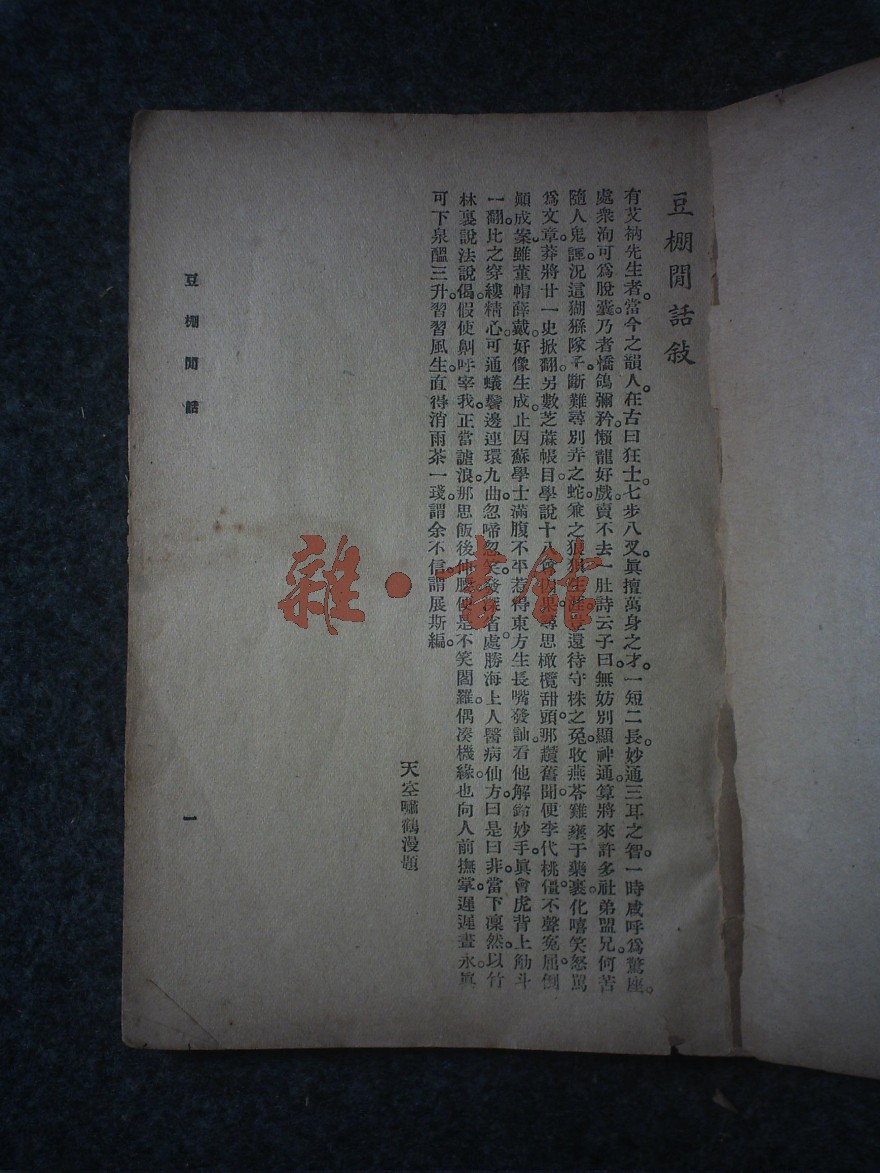 豆棚閒話敍
有艾衲先生者。當今之韻人。在古曰狂士。七步八叉。眞擅萬身之才。一短二長。妙通三耳之智。一時咸呼爲驚座。
處衆洵可爲脫囊。乃者懦鴿彌矜。懶龍好戲。賣不去一肚詩云子曰。無妨別顯神通。算將來許多社弟盟兄。何苦
隨人鬼諢。況這猢猻隊子。斷難尋別弄之蛇。兼之狼狽生涯。豈還待守株之兔。收燕苓雞壅于藥裹。化嘻笑怒罵
爲文章。莽將廿一史掀翻。另數芝蔴帳目。學說十八尊因果。尋思橄欖甜頭。那趲舊聞。便李代桃僵。不聲冤屈。倒
顚成案。雖董帽薛戴。好像生成。止因蘇學士滿腹不平。惹得東方生長嘴發訕。看他解鈴妙手。眞會虎背上觔斗
一翻。比之穿縷精心。可通蟻鬢邊連環九曲。忽啼忽笑。發深省處。勝海上人醫病仙方。曰是曰非。當下凜然。以竹
林裏說法說偈。假使鼾呼宰我。正當謔浪。那思飯後伸腰。便是不笑閻羅。偶湊機緣。也向人前撫掌。遲遲晝永。眞
可下泉醞三升。習習風生。直得消雨茶一琖。謂余不信。謂展斯編。
天空嘯鶴漫題
豆棚閒話
一
雜·書館